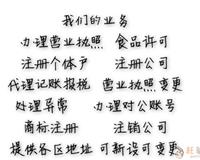 我们的业务
办理营业执照 食品许可
注册个体户 注册公司
代理记账报税 营业执照变更
处理异常 办理对公账号
商标注册 注销公司
提供各区地址 可新设可变更